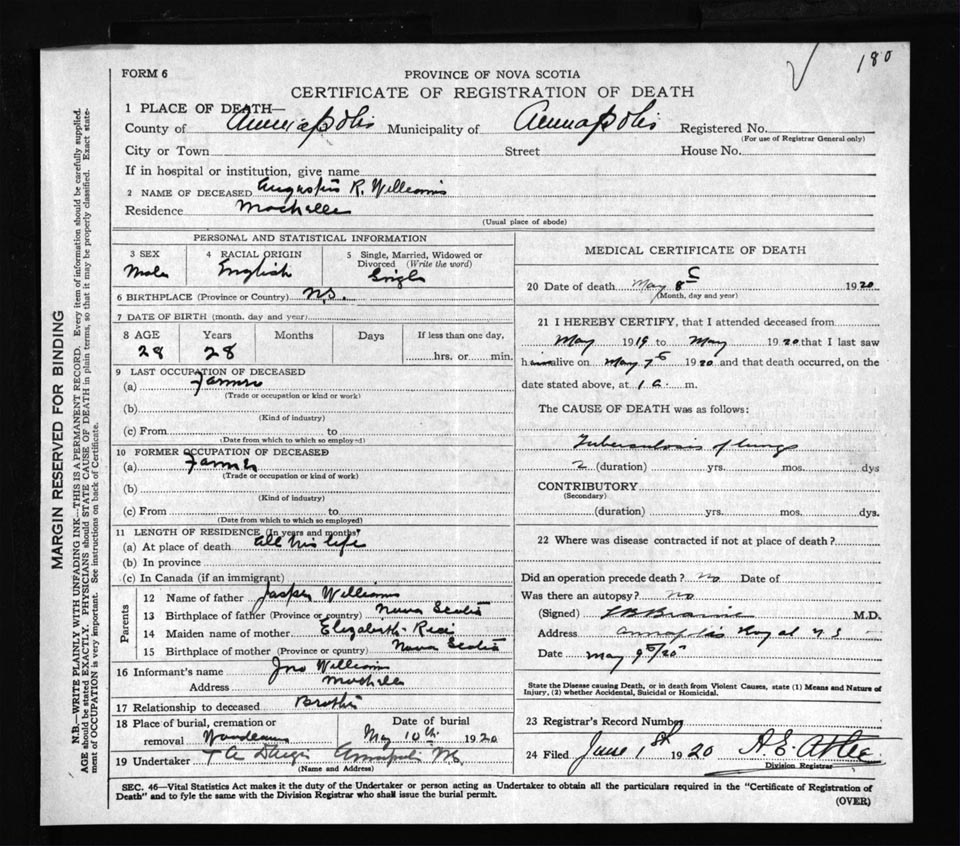 180
FORM 6
PROVINCE OF NOVA SCOTIA
CERTIFICATE OF REGISTRATION OF DEATH
1 PLACE OF DEATH—
County of Annapolis Municipality of Annapolis Registered No.
(For use of Registrar General only)
City or Town Street House No.
If in hospital or institution, give name
2 NAME OF DECEASED R. Williams
Residence Mochelle
(Usual place of abode)
PERSONAL AND STATISTICAL INFORMATION
3 SEX 4 RACIAL ORIGIN 5 Single, Married, Widowed or
Divorced (Write the word)
Male English Single
6 BIRTHPLACE (Province or Country) N.S.
7 DATE OF BIRTH (month, day and year)
8 AGE Years Months Days If less than one day,
28 28 hrs. or min.
9 LAST OCCUPATION OF DECEASED
(a) Farmer
(Trade or occupation or kind or work)
(b)
(Kind of industry)
(c) From to
(Date from which to which so employed)
10 FORMER OCCUPATION OF DECEASED
(a) Farmer
(Trade or occupation or kind or work)
(b)
(Kind of industry)
(c) From to
(Date from which to which so employed)
11 LENGTH OF RESIDENCE (In years and months)
(a) At place of death all his life
(b) In province
(c) In Canada (if an immigrant)
Parents
12 Name of father Jasper Williams
13 Birthplace of father (Province or country) Nova Scotia
14 Maiden name of mother Elizabeth
15 Birthplace of mother (Province or country) Nova Scotia
16 Informant's name Jno Williams
Address Mochelle
17 Relationship to deceased Brother
18 Place of burial, cremation or Date of burial
removal May 10th 1920
19 Undertaker T A
(Name and Address)
MEDICAL CERTIFICATE OF DEATH
20 Date of death May 8 1920
(Month, day and year)
21 I HEREBY CERTIFY, that I attended deceased from
May 1919 to May 1920 that I last saw
him alive on May 7 1920 and that death occurred, on the
date stated above, at 1 a. m.
The CAUSE OF DEATH was as follows:
Tuberculosis of lungs
2 (duration) yrs. mos. dys
CONTRIBUTORY
(Secondary)
(duration) yrs. mos. dys.
22 Where was disease contracted if not at place of death?
Did an operation precede death? no Date of
Was there an autopsy? no
(Signed) M.D.
Address Annapolis Royal N S
Date May 9 /20
State the Disease causing Death, or in death from Violent Causes, state (1) Means and Nature of
Injury, (2) whether Accidental, Suicidal or Homicidal.
23 Registrar's Record Number
24 Filed June 1st 1920 A. E.
Division Registrar
SEC. 46—Vital Statistics Act makes it the duty of the Undertaker or person acting as Undertaker to obtain all the particulars required in the "Certificate of Registration of
Death" and to fyle the same with the Division Registrar who shall issue the burial permit.
(OVER)
MARGIN RESERVED FOR BINDING
N.B.—WRITE PLAINLY WITH UNFADING INK—THIS IS A PERMANENT RECORD. Every item of information should be carefully supplied.
AGE should be stated EXACTLY. PHYSICIANS should STATE CAUSE OF DEATH in plain terms, so that it may be properly classified. Exact state-
ment of OCCUPATION is very important. See instructions on back of Certificate.